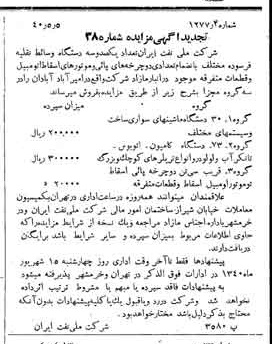 شماره ۱۲۷۷۴ ۵ر۵ر۴۰
تجدید آگهی مزایده شماره ۳۸
شرکت ملی نفت ایران تعداد یکصد و سه دستگاه وسائط نقلیه
فرسوده مختلف باضمام تعدادی دوچرخه های پائی و موتورهای اسقاط اتومبیل
وقطعات متفرقه موجود درانبار مازاد شرکت واقع در امیرآباد آبادان را در
سه گروه مجزا بشرح زیر از طریق مزایده بفروش میرساند
گروه شرح میزان سپرده
گروه۱، ۳۰ دستگاه ماشینهای سواری ساخت
وسیستمهای مختلف ۲۰۰٫۰۰۰ ریال
گروه۲، ۷۳ دستگاه، کامیون - اتوبوس -
تانکر آب ولاودر وانواع تریلرهای کوچک وبزرگ ۳۰۰٫۰۰۰ ریال
گروه۳، قریب سی تن دوچرخه پائی اسقاط
وموتور اتومبیل اسقاط وقطعات متفرقه ۲۰٫۰۰۰ »
علاقمندان میتوانند همه روزه در ساعت اداری در تهران بکمیسیون
معاملات خیابان شیراز ساختمان امور مالی شرکت ملی نفت ایران ودر
خرمشهر باداره اجناس مازاد مراجعه ویک نسخه از شرایط مزایده را که
حاوی اطلاعات مربوط بمیزان سپرده و سایر شرایط باشد برایگان
دریافت دارند.
پیشنهادها فقط تا آخر وقت اداری روز چهارشنبه ۱۵ شهریور
ماه ۱۳۴۰ در ادارات فوق الذکر در تهران وخرمشهر پذیرفته میشود
به پیشنهادات فاقد سپرده یا مبهم یا مشروط ترتیب اثر داده
نخواهد شد وشرکت در رد وباقبول یک یا کلیه پیشنهادات بدون آنکه
محتاج بذکر دلیل باشد مختار خواهد بود.
پ ۳۵۸۰ شرکت ملی نفت ایران